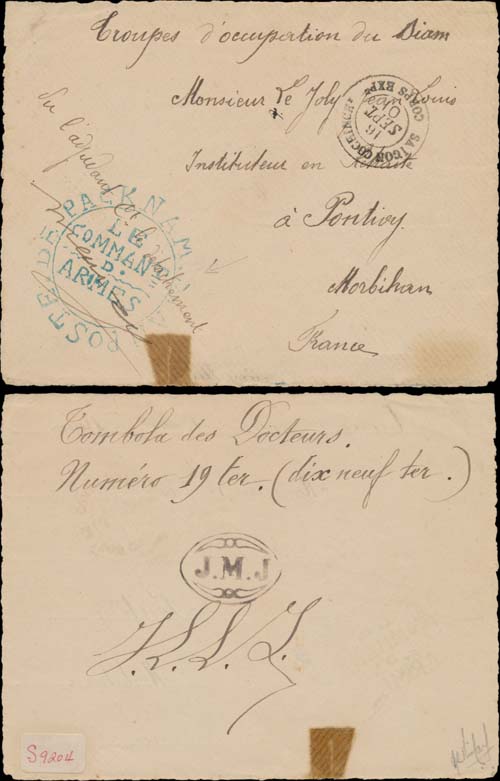 Troupes d'occupation du Siam
Monsieur Le Joly Jean Louis
Instituteur en Retraite
à Pontivy
Morbihan
France
Vu l'adjudant Ct le détachement
POSTE DE PACKNAM
LE
COMMANT
D'
ARMES
SAIGON COCHINCHINE
CORPS EXPre
16
SEPT
Tombola des Docteurs.
Numéro 19 ter. (dix neuf ter.)
J.M.J
S9204